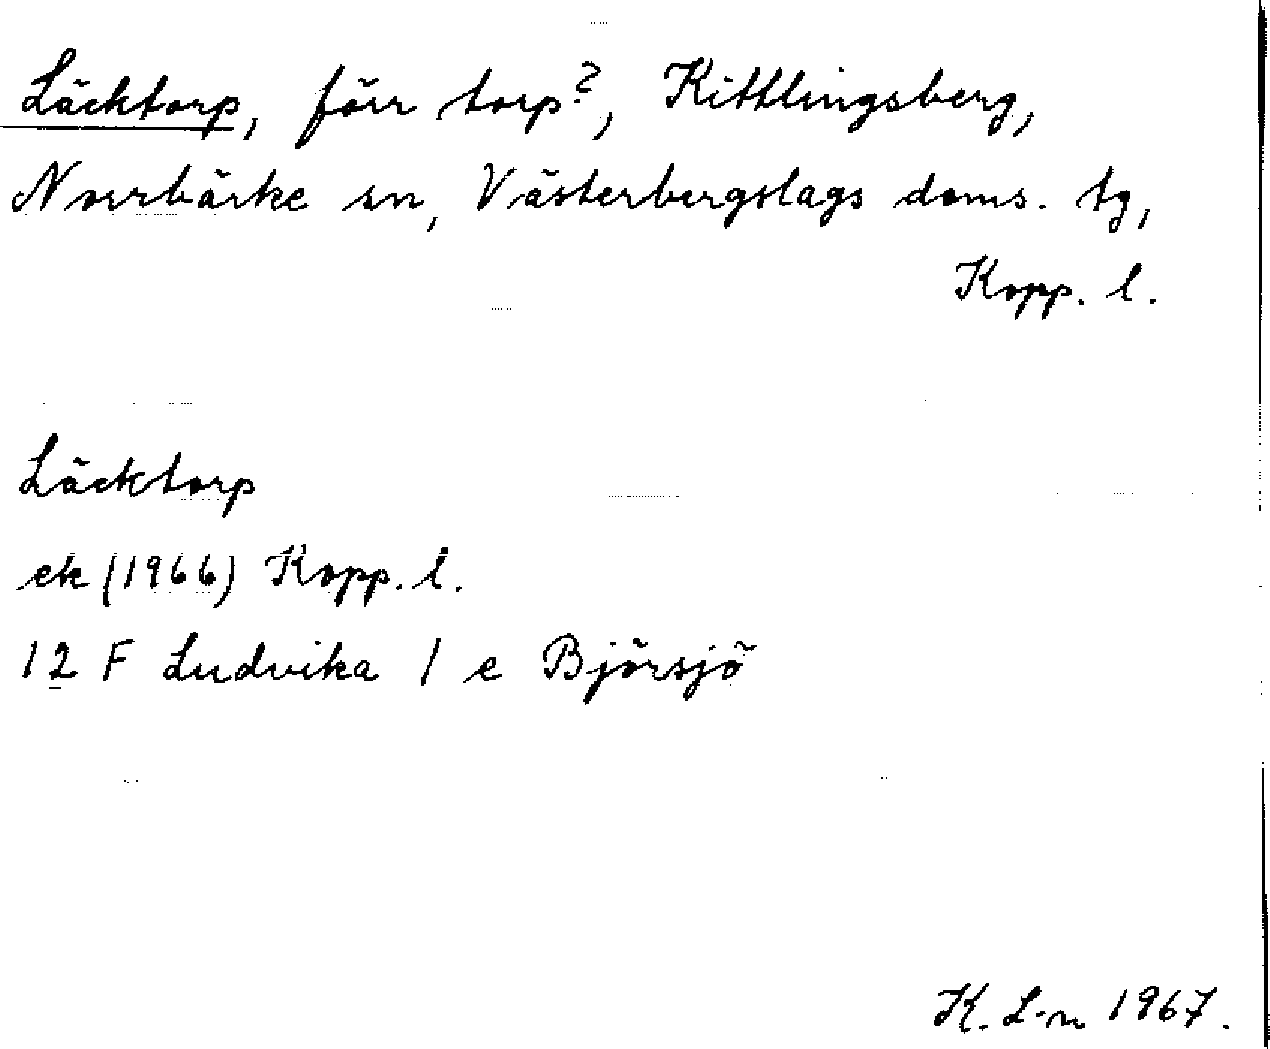 Läcktorp, förr torp?, Kittlingsberg,
Norrbärke sn, Västerbergslags doms. tg,
Kopp. l.
Läcktorp
ek (1966) Kopp. l.
12 F Ludvika 1 e Björsjö
K. L-n 1967.